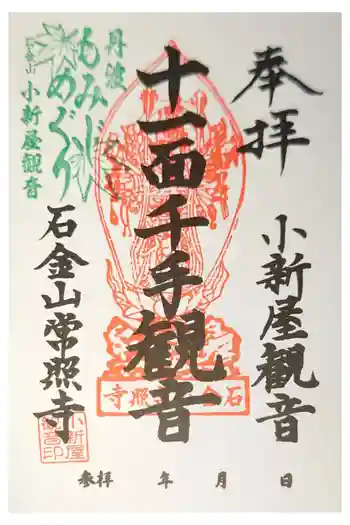 奉拝
小新屋観音
十一面千手観音
丹波
もみじ
めぐり
石金山
小新屋観音
石金山常照寺
石金山常照寺
小新屋
観音印
参拝 年 月 日